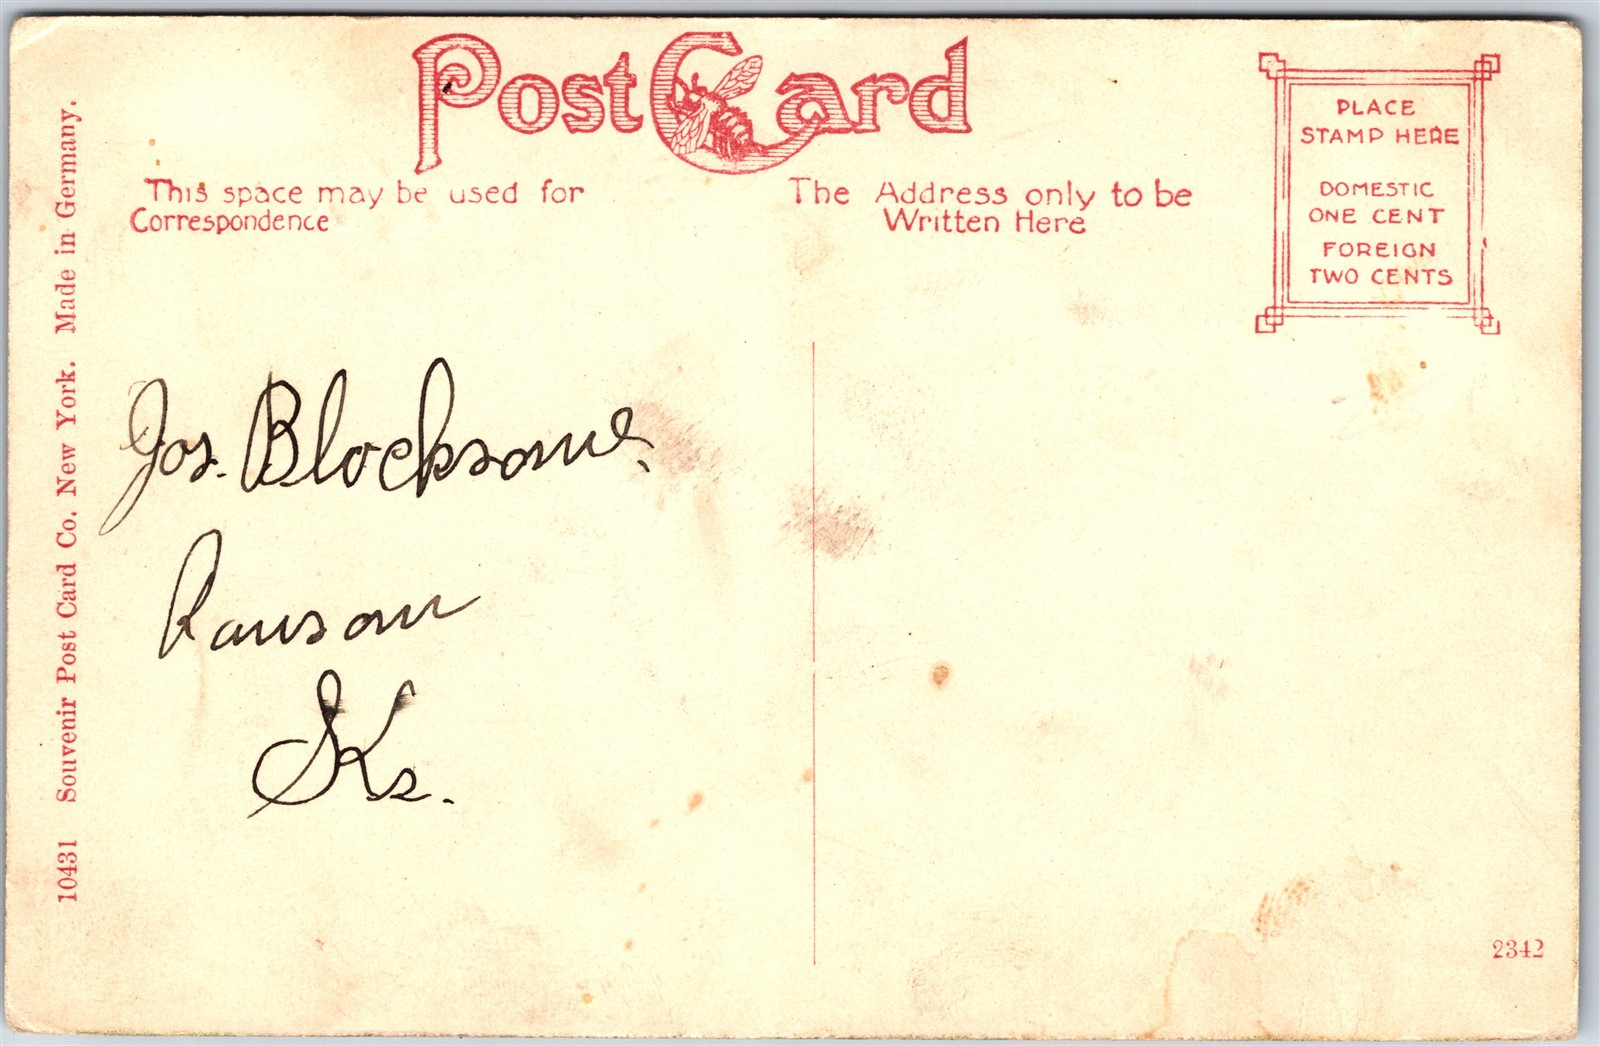 Post Card
This space may be used for
Correspondence
The Address only to be
Written Here
PLACE
STAMP HERE
DOMESTIC
ONE CENT
FOREIGN
TWO CENTS
10431 Souvenir Post Card Co. New York. Made in Germany.
Jos. Blocksome.
Ransom
Ks.
2342